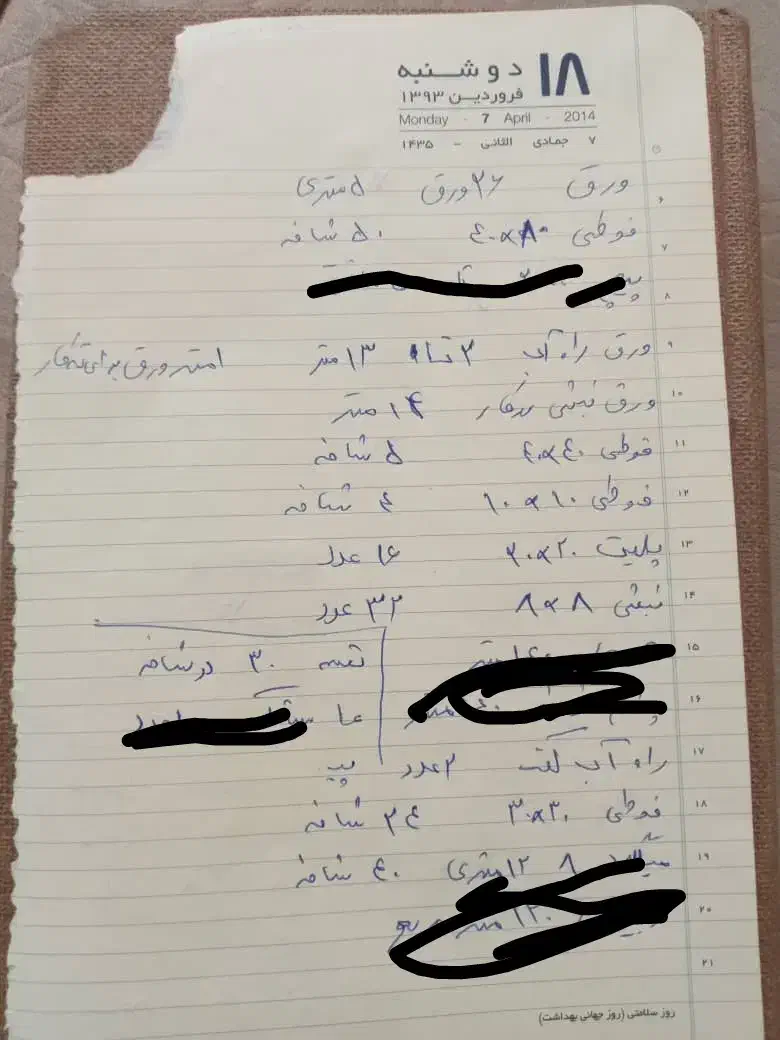 ۱۸ دوشنبه
فروردین ۱۳۹۳
Monday - 7 April - 2014
۷ جمادی الثانی - ۱۴۳۵
ورق ۲۶ ورق ۵ متری
۶
قوطی ۸۰×۴۰ ۵۰ شاخه
۷
۸
ورق راه آب ۲ تا ۱۳ متر
۹
ورق نبشی ۱۴ متر
۱۰
قوطی ۴۰×۴۰ ۵ شاخه
۱۱
قوطی ۱۰×۱۰ ۴ شاخه
۱۲
پلیت ۲۰×۲۰ ۱۶ عدد
۱۳
نبشی ۸×۸ ۳۲ عدد
۱۴
تسمه ۳۰ دو شاخه
۱۵
۱۶
راه آب ۲ عدد
۱۷
قوطی ۳۰×۳۰ ۲۴ شاخه
۱۸
۸ ۱۲ متری ۴۰ شاخه
۱۹
۲۰
۲۱
روز سلامتی (روز جهانی بهداشت)